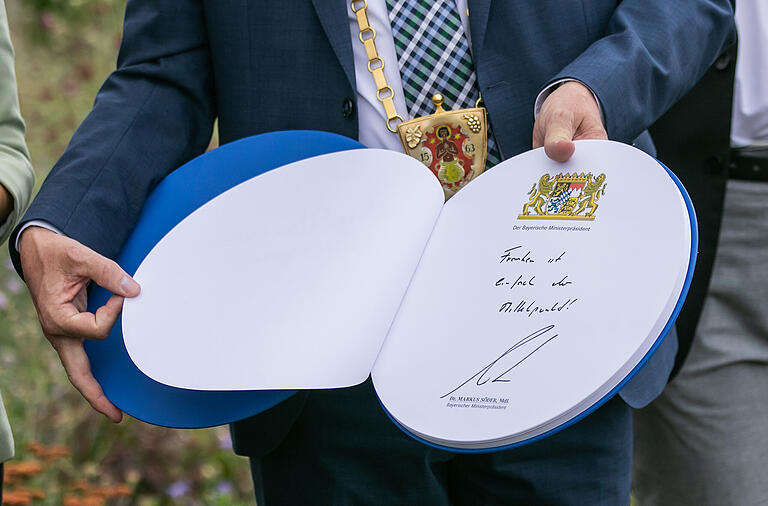 1563
Der Bayerische Ministerpräsident
Franken ist
einfach der
Mittelpunkt!
Dr. MARKUS SÖDER, MdL
Bayerischer Ministerpräsident